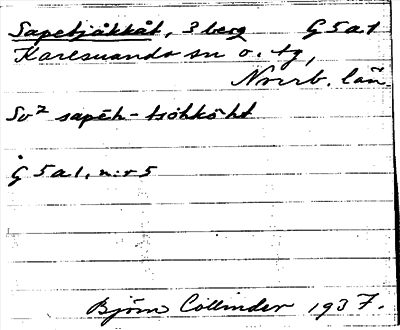 Sapetjåkkåt, 3 berg G 5 a 1
Karesuando sn o. tg,
Norrb. län
Sv² sapēh-tsǒhkǒht
G 5 a 1, n:r 5
Björn Collinder 1937.